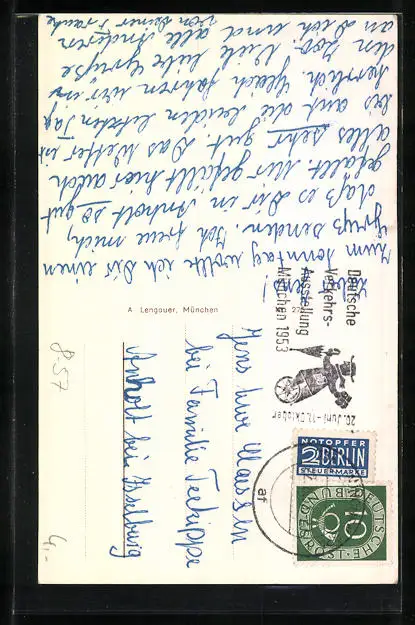 Lieber Jens!
Zum Sonntag wollte ich Dir einen
Gruß senden. Ich freue mich,
daß es Dir in Anholt so gut
gefällt. Mir gefällt hier auch
alles sehr gut. Das Wetter ist
bis auf die beiden letzten Tage
herrlich. Gleich fahren wir in
den Zoo. Viele liebe Grüße
an Dich und alle Anderen
von Deiner
A. Lengauer, München
27
Deutsche
Verkehrs-
Ausstellung
München 1953
20. Juni - 11. Oktober
af
NOTOPFER
2 BERLIN
STEUERMARKE
DEUTSCHE
BUNDESPOST
10
Jens Uwe Claussen
bei Familie
Anholt bei Isselburg
8.57
4,-